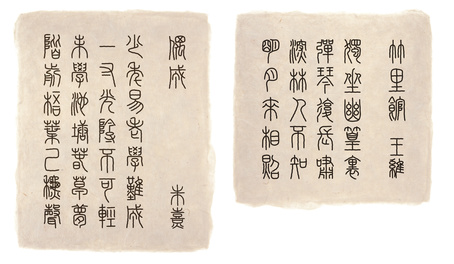 竹里館 王維
獨坐幽篁裏
彈琴復長嘯
深林人不知
明月來相照
偶成 朱熹
少年易老學難成
一寸光陰不可輕
未覺池塘春草夢
階前梧葉已秋聲